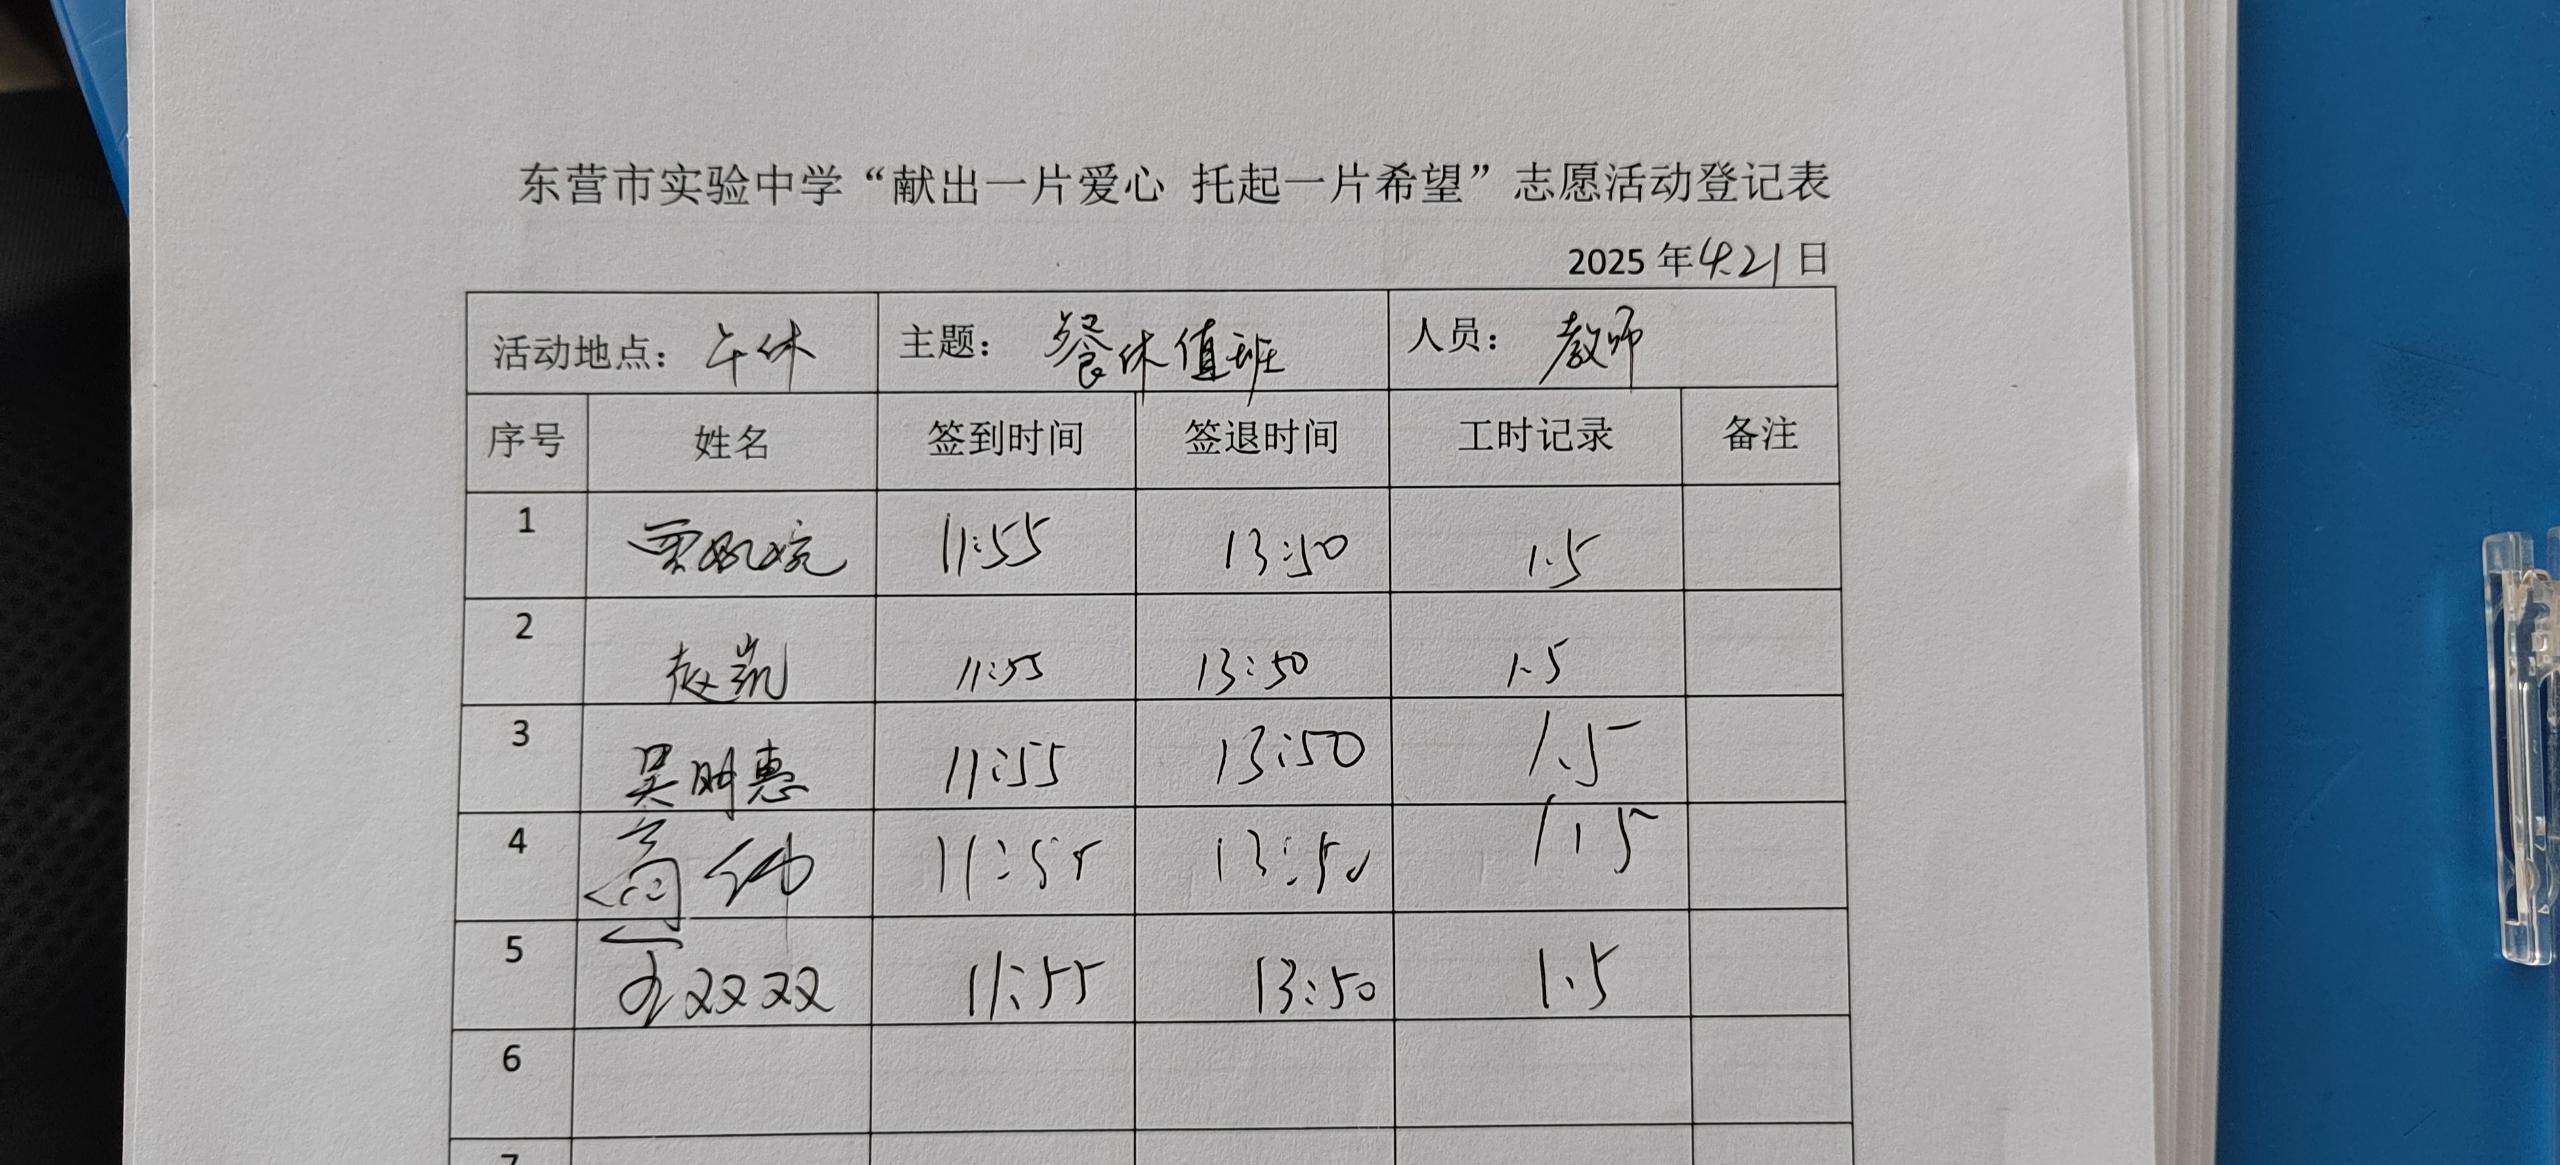 东营市实验中学“献出一片爱心 托起一片希望”志愿活动登记表
2025 年 4.21 日
活动地点： 午休 主题： 餐休值班 人员： 教师
序号 姓名 签到时间 签退时间 工时记录 备注
1 11:55 13:50 1.5
2 赵凯 11:55 13:50 1.5
3 吴明惠 11:55 13:50 1.5
4 高伟 11:55 13:50 1.5
5 王双双 11:55 13:50 1.5
6
7